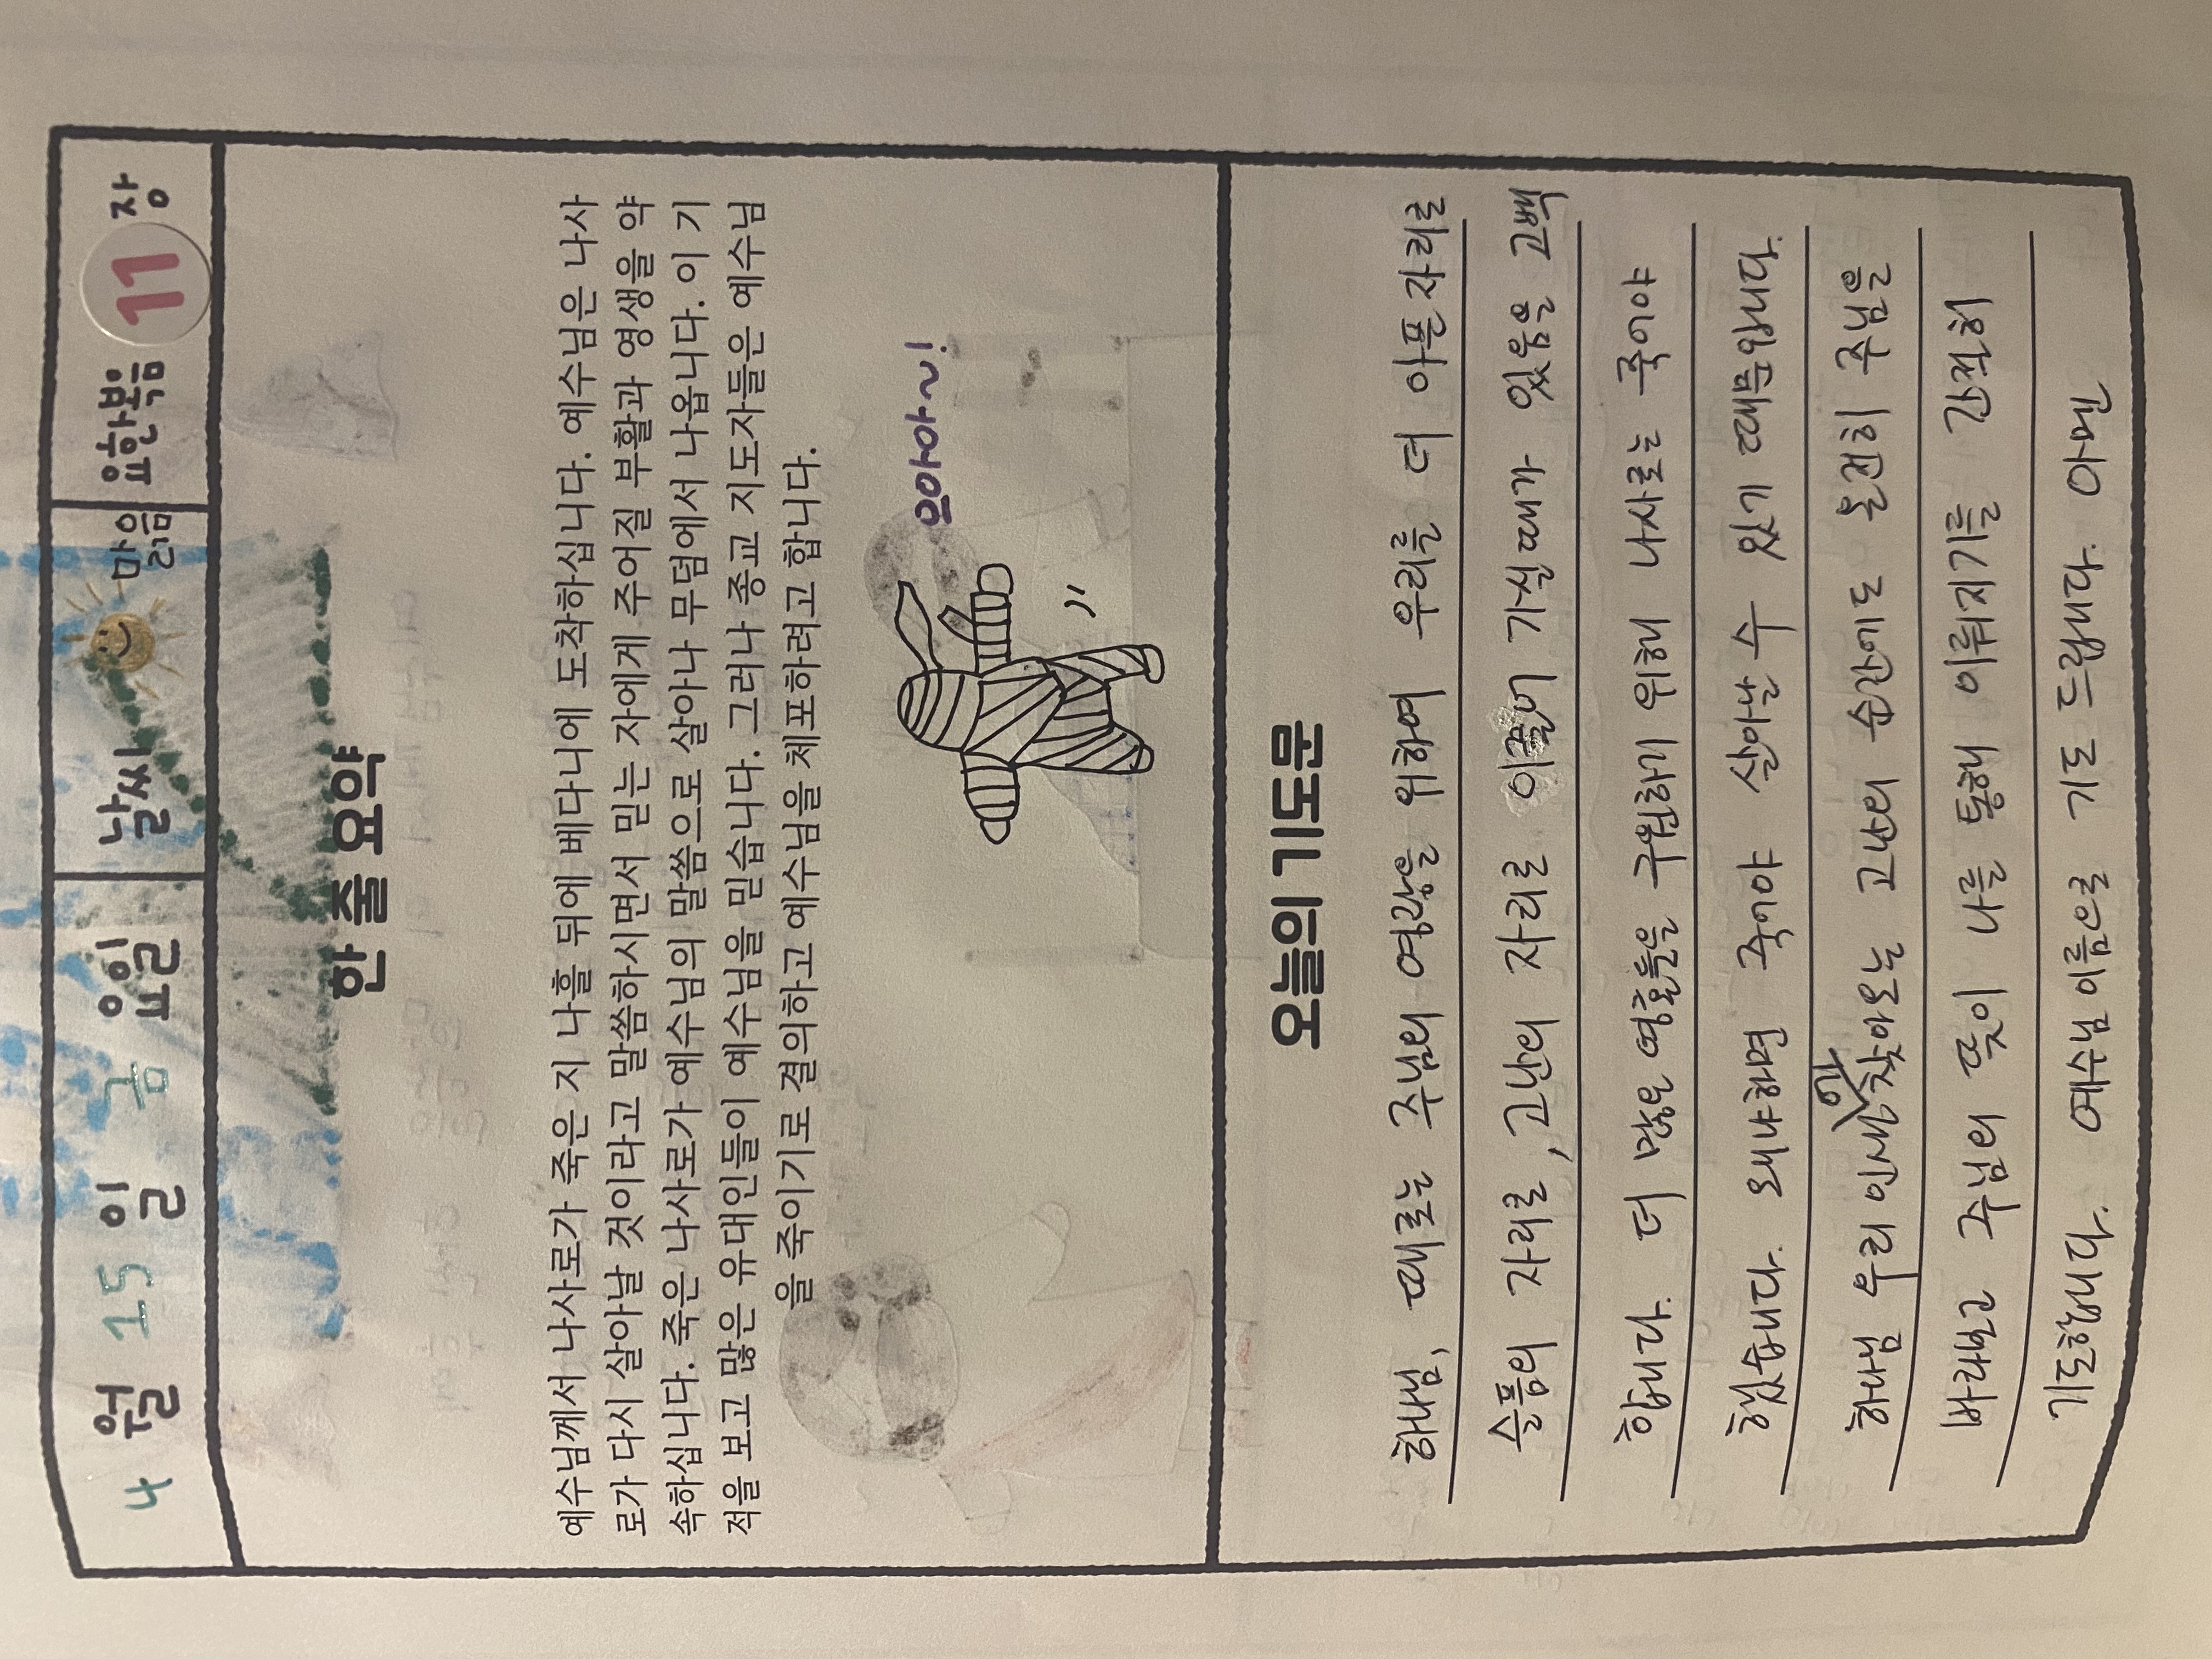 4 월 15 일 금 요일 날씨 맑음 요한복음 11 장
한 줄 요약
예수님께서 나사로가 죽은 지 나흘 뒤에 베다니에 도착하십니다. 예수님은 나사
로가 다시 살아날 것이라고 말씀하시면서 믿는 자에게 주어질 부활과 영생을 약
속하십니다. 죽은 나사로가 예수님의 말씀으로 살아나 무덤에서 나옵니다. 이 기
적을 보고 많은 유대인들이 예수님을 믿습니다. 그러나 종교 지도자들은 예수님
을 죽이기로 결의하고 예수님을 체포하려고 합니다.
으아아~!
오늘의 기도문
하나님, 때로는 주님의 영광을 위하여 우리를 더 아픈자리로
슬픔의 자리로, 고난의 자리로 이끌어 가실때가 있음을 고백
합니다. 더 많은 영혼들을 구원하기 위해 나사로는 죽어야
했습니다. 왜냐하면 죽어야 살아날 수 있기 때문입니다.
하나님 우리 인생에 찾아오는 고난의 순간에도 온전히 주님을
바라보고 주님의 뜻이 나를 통해 이뤄지기를 간절히
기도합니다. 예수님이름으로 기도 드립니다. 아멘